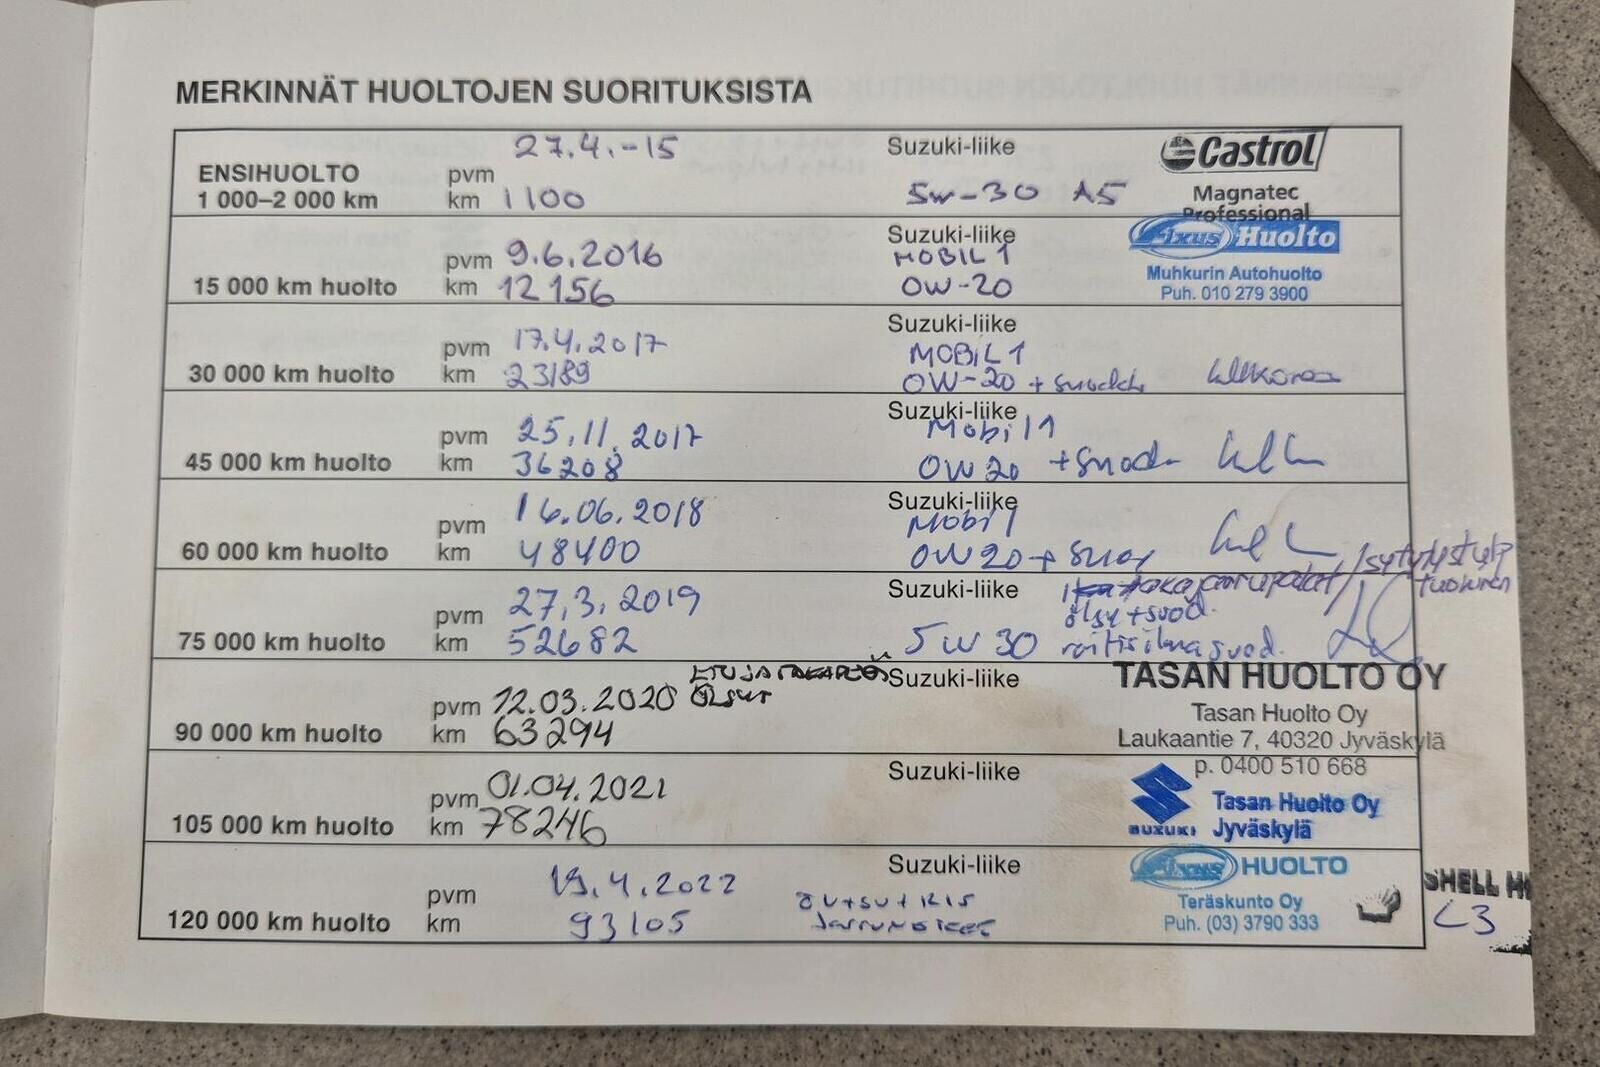 MERKINNÄT HUOLTOJEN SUORITUKSISTA
27.4.-15 Suzuki-liike Castrol
ENSIHUOLTO pvm
1 000–2 000 km km 1100 5w-30 A5 Magnatec
Professional
Suzuki-liike Fixus Huolto
pvm 9.6.2016 MOBIL 1 Muhkurin Autohuolto
15 000 km huolto km 12156 0W-20 Puh. 010 279 3900
Suzuki-liike
pvm 17.4.2017 MOBIL 1
30 000 km huolto km 23189 0W-20 + suodatin
Suzuki-liike
pvm 25.11.2017 Mobil 1
45 000 km huolto km 36208 0W20 + suod
Suzuki-liike
pvm 16.06.2018 Mobil 1
60 000 km huolto km 48400 0W20 +
Suzuki-liike
pvm 27.3.2019 öljy + suod.
75 000 km huolto km 52682 5W30 raitisilmasuod.
Suzuki-liike TASAN HUOLTO OY
pvm 12.03.2020 Tasan Huolto Oy
90 000 km huolto km 63294 Laukaantie 7, 40320 Jyväskylä
Suzuki-liike p. 0400 510 668
pvm 01.04.2021 Tasan Huolto Oy
105 000 km huolto km 78246 SUZUKI Jyväskylä
Suzuki-liike Fixus HUOLTO
pvm 19.4.2022 Teräskunto Oy SHELL
120 000 km huolto km 93105 Puh. (03) 3790 333 C3